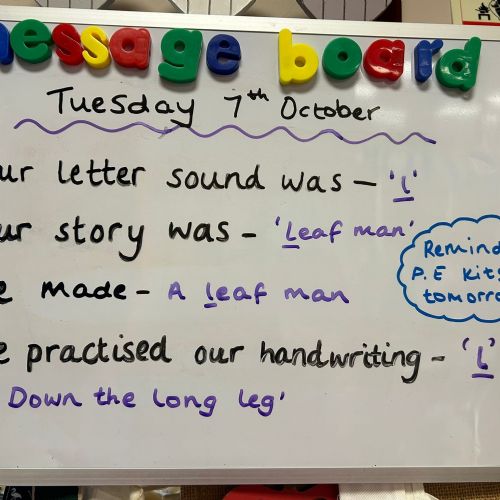 essage board
Tuesday 7th October
ur letter sound was - 'l'
ur story was - 'Leaf man'
e made - A leaf man
e practised our handwriting - 'l'
Down the long leg'
Remind
P.E Kits
tomorro